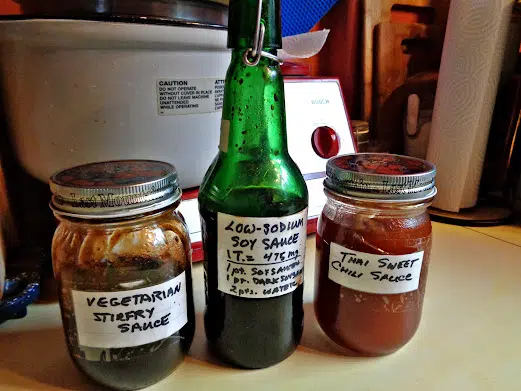 CAUTION
DO NOT OPERATE
WITHOUT COVER IN PLACE
DO NOT LEAVE MACHINE
UNATTENDED
WHILE OPERATING
BOSCH
VEGETARIAN
STIRFRY
SAUCE
LOW-SODIUM
SOY SAUCE
1 T. = 475 mg
1 pt. SOY SAUCE
1 pt. DARK SOY
2 pts. WATER
THAI SWEET
CHILI SAUCE